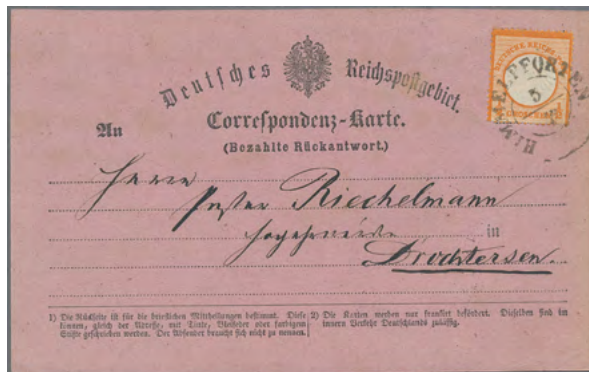 Deutsches Reichspostgebiet.
HIMMELPFORTEN
5
An
Correspondenz-Karte.
(Bezahlte Rückantwort.)
Herrn
Pastor Riechelmann
in
Drochtersen.
1) Die Rückseite ist für die brieflichen Mittheilungen bestimmt. Diese
können, gleich der Adresse, mit Tinte, Bleifeder oder farbigem
Stifte geschrieben werden. Der Absender braucht sich nicht zu nennen.
2) Die Karten werden nur frankirt befördert. Dieselben sind im
innern Verkehr Deutschlands zulässig.